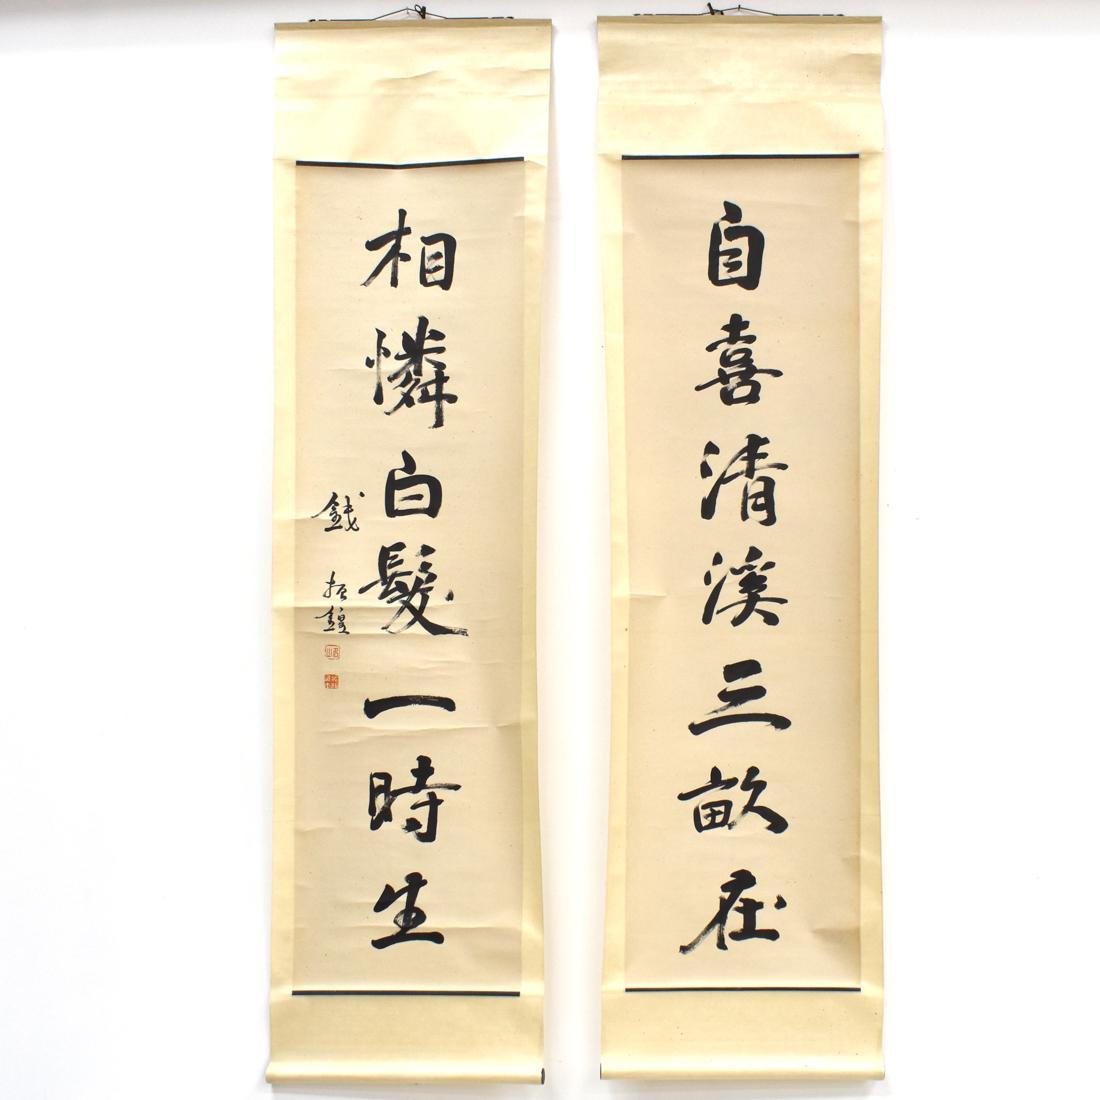 自喜清溪三畝在
相憐白髮一時生
錢振鍠